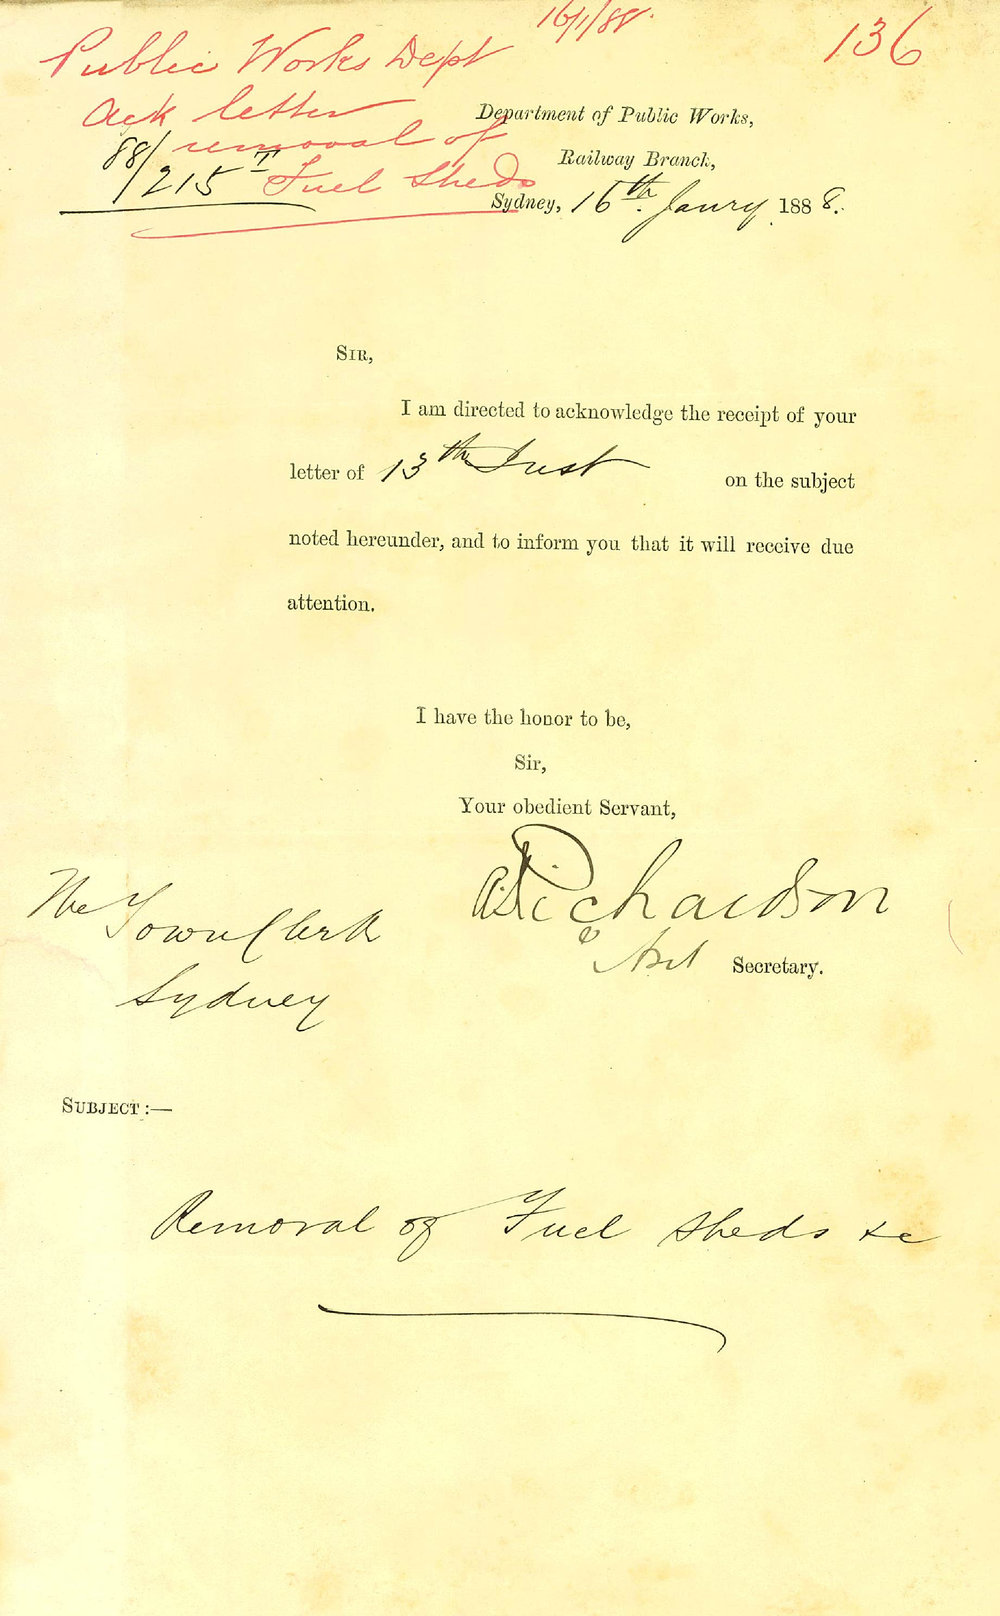 16/1/88.
136
Public Works Dept
Ack letter
removal of
Fuel Sheds
88/215 T
Department of Public Works,
Railway Branch,
Sydney, 16th. Janry 1888.
SIR,
I am directed to acknowledge the receipt of your
letter of 13th Inst on the subject
noted hereunder, and to inform you that it will receive due
attention.
I have the honor to be,
Sir,
Your obedient Servant,
Richardson
Secretary.
The Town Clerk
Sydney
SUBJECT :—
Removal of Fuel Sheds &c